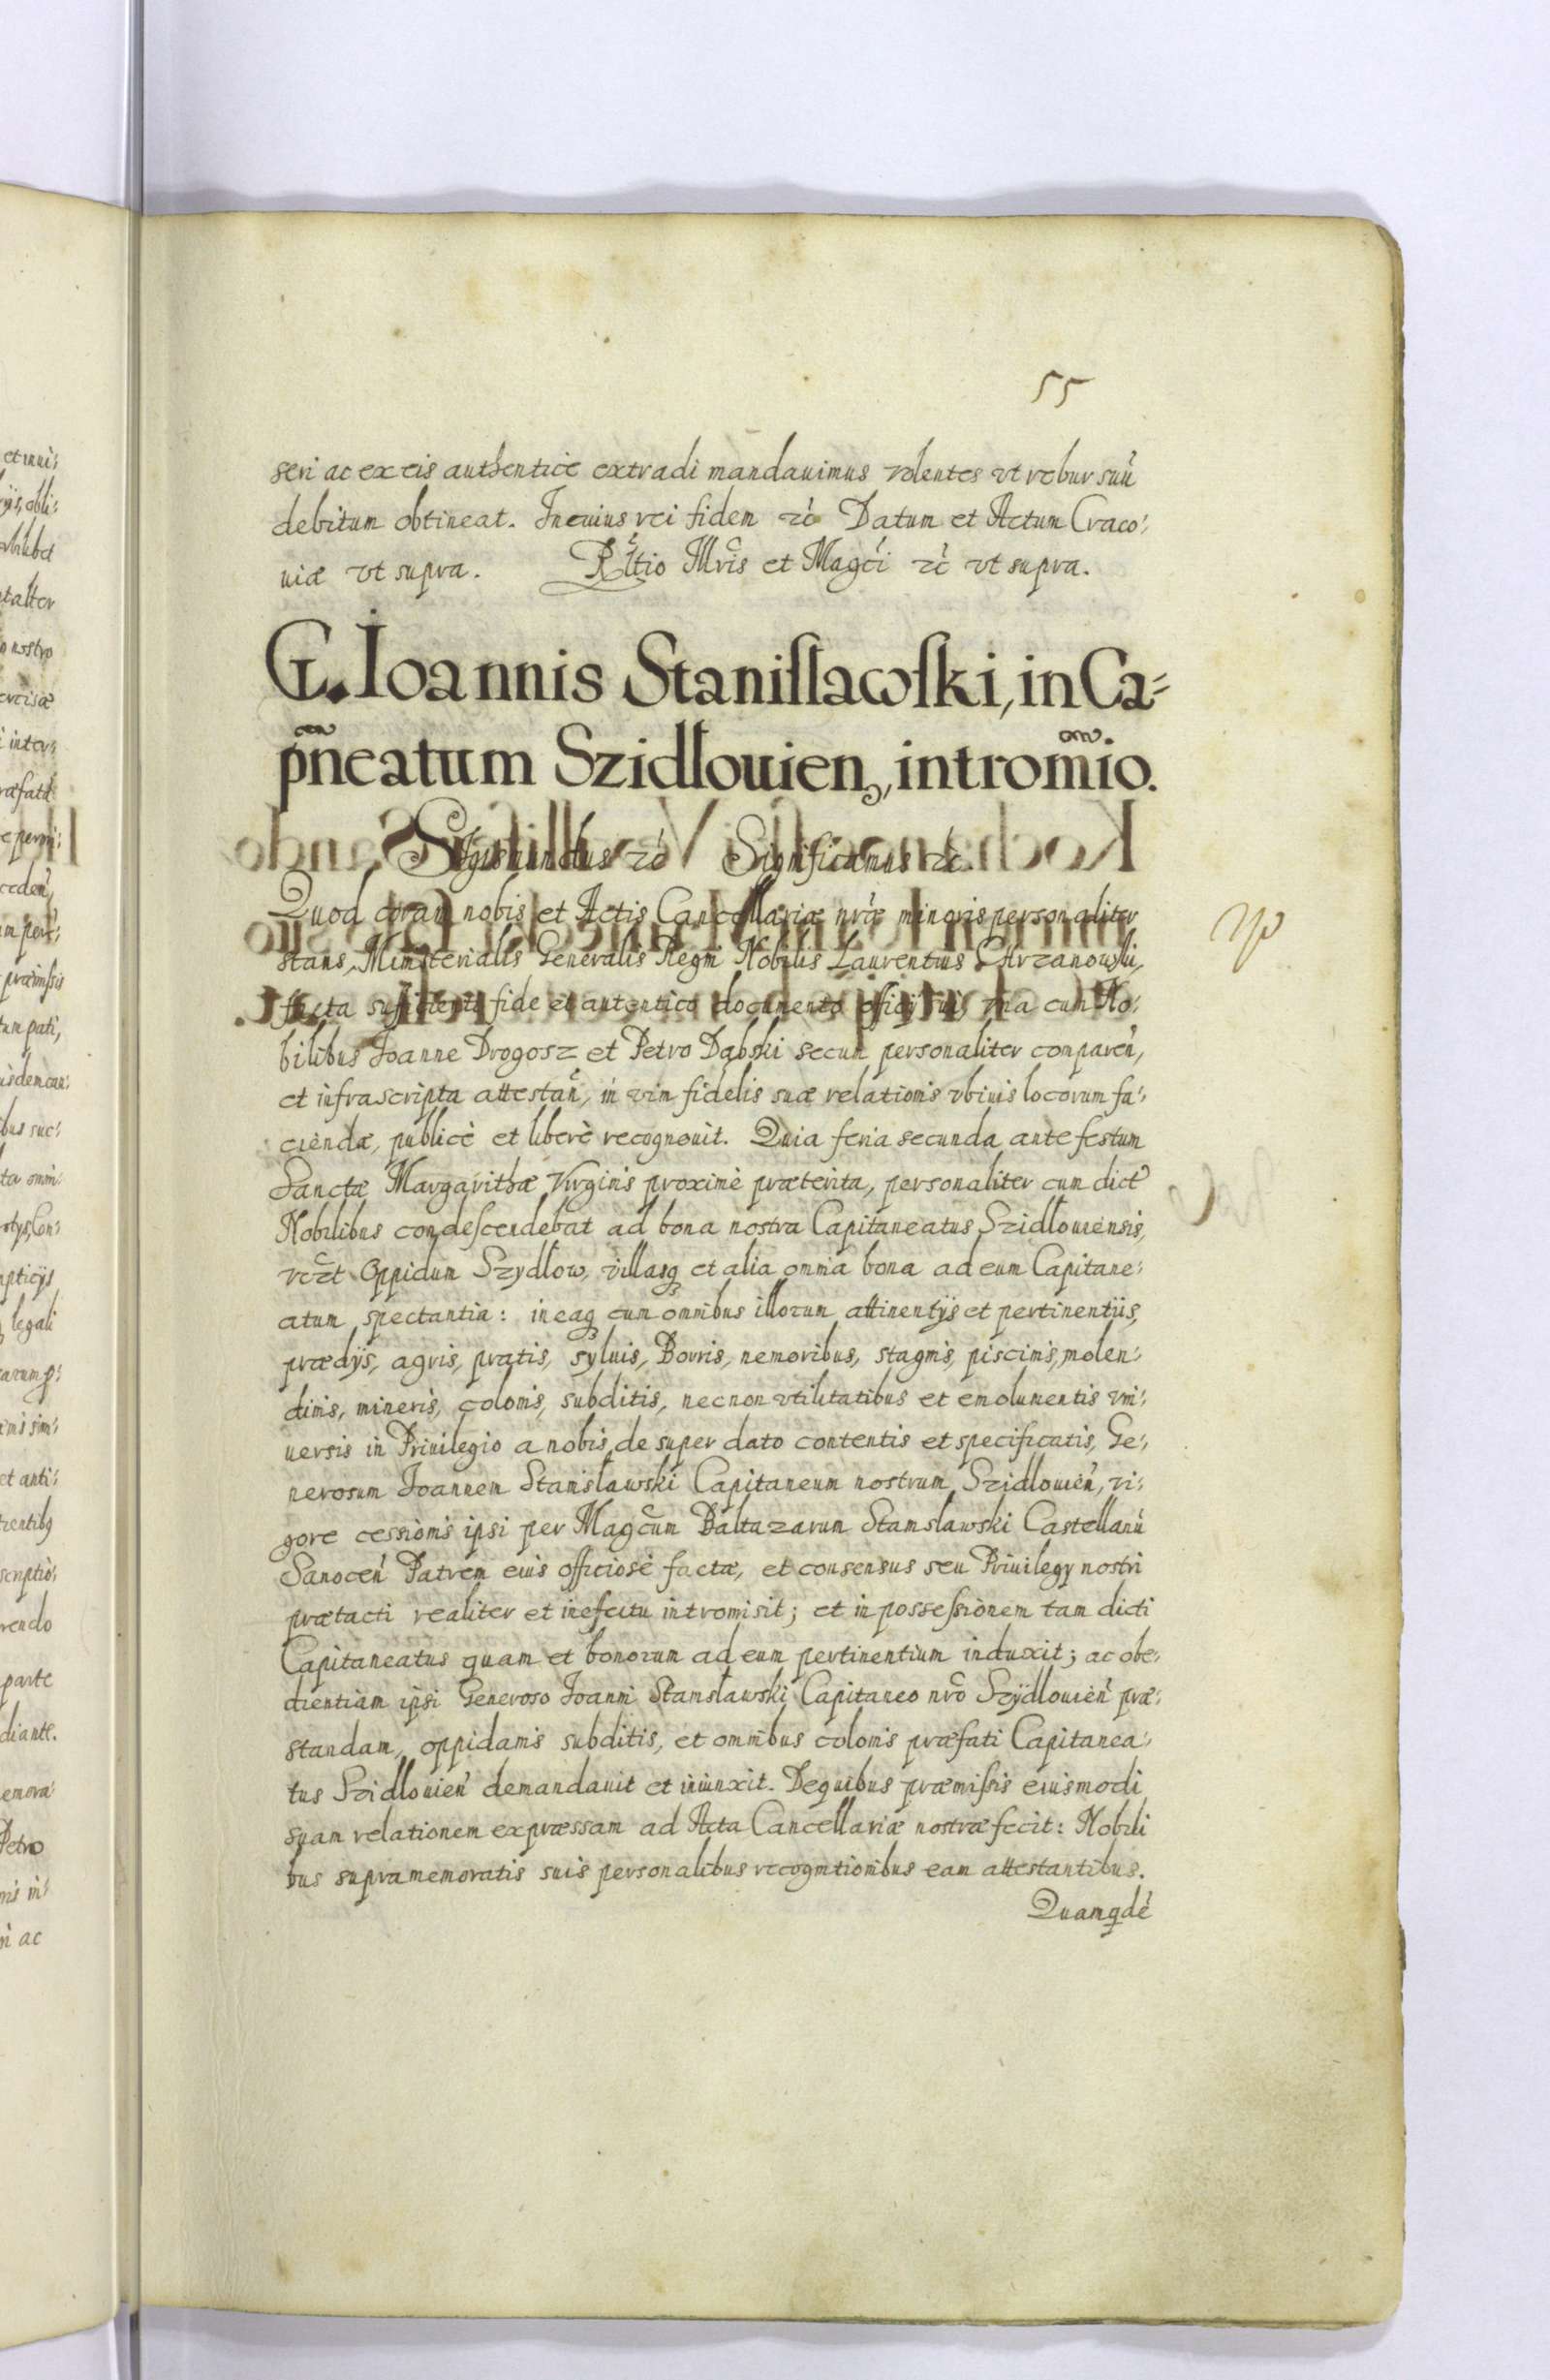 55
seri ac ex eis authentice extradi mandauimus volentes vt robur suũ
debitum obtineat. In cuius rei fidem ztc̀ Datum et Actum Craco:
uiæ vt supra. R̃ltio Illr̃is et Magc̃i ztc̀ vt supra.
G. Ioannis Staniſlawſki, in Ca=
pñeatum Szidlouien, intromĩo.
Sigismundus ztc̀ Significamus ztc̀
Quod coram nobis et Actis Cancellariæ nr̃æ minoris personaliter
stans, Ministerialis Generalis Regni Nobilis Laurentius Charzanowski,
facta sufficienti fide et autentico documento officij sui vna cum No:
bilibus Joanne Drogosz et Petro Dąbski secum personaliter comparen̄,
et infrascripta attestan̄, in vim fidelis suæ relationis vbiuis locorum fa:
ciendæ, publicè et liberè recognouit. Quia feria secunda ante festum
Sanctæ Margarithæ Virginis proximè præterita, personaliter cum dict̃
Nobilibus condeſcendebat ad bona nostra Capitaneatus Szidlouiensis,
vcz̃t Oppidum Szydłow, villasq̨ et alia omnia bona ad eum Capitane:
atum spectantia: in eaq̨ cum omnibus illorum attinentijs et pertinentiis,
prædijs, agris, pratis, syluis, Borris, nemoribus, stagnis, piscinis, molen:
dinis, mineris, colonis, subditis, necnon vtilitatibus et emolumentis vni:
uersis in Priuilegio a nobis de super dato contentis et specificatis, Ge:
nerosum Joannem Stanisławski Capitaneum nostrum Szidlouien̄, vi:
gore cessionis ipsi per Magc̃um Baltazarum Stanislawski Castellanũ
Sanocen̄ Patrem eius officiosè factæ, et consensus seu Priuilegy nostri
prætacti realiter et in efectu intromisit; et in posseſsionem tam dicti
Capitaneatus quam et bonorum ad eum pertinentium induxit; ac obe:
dientiam ipsi Generoso Joanni Stanisławski Capitaneo nr̃o Szÿdlouien̄ præ:
standam, oppidanis subditis, et omnibus colonis præfati Capitanea:
tus Szidlouien̄ demandauit et iniunxit. De quibus præmiſsis eiusmodi
suam relationem expræssam ad Acta Cancellariæ nostræ fecit: Nobili
bus supramemoratis suis personalibus recognitionibus eam attestantibus.
Quamq̨dè